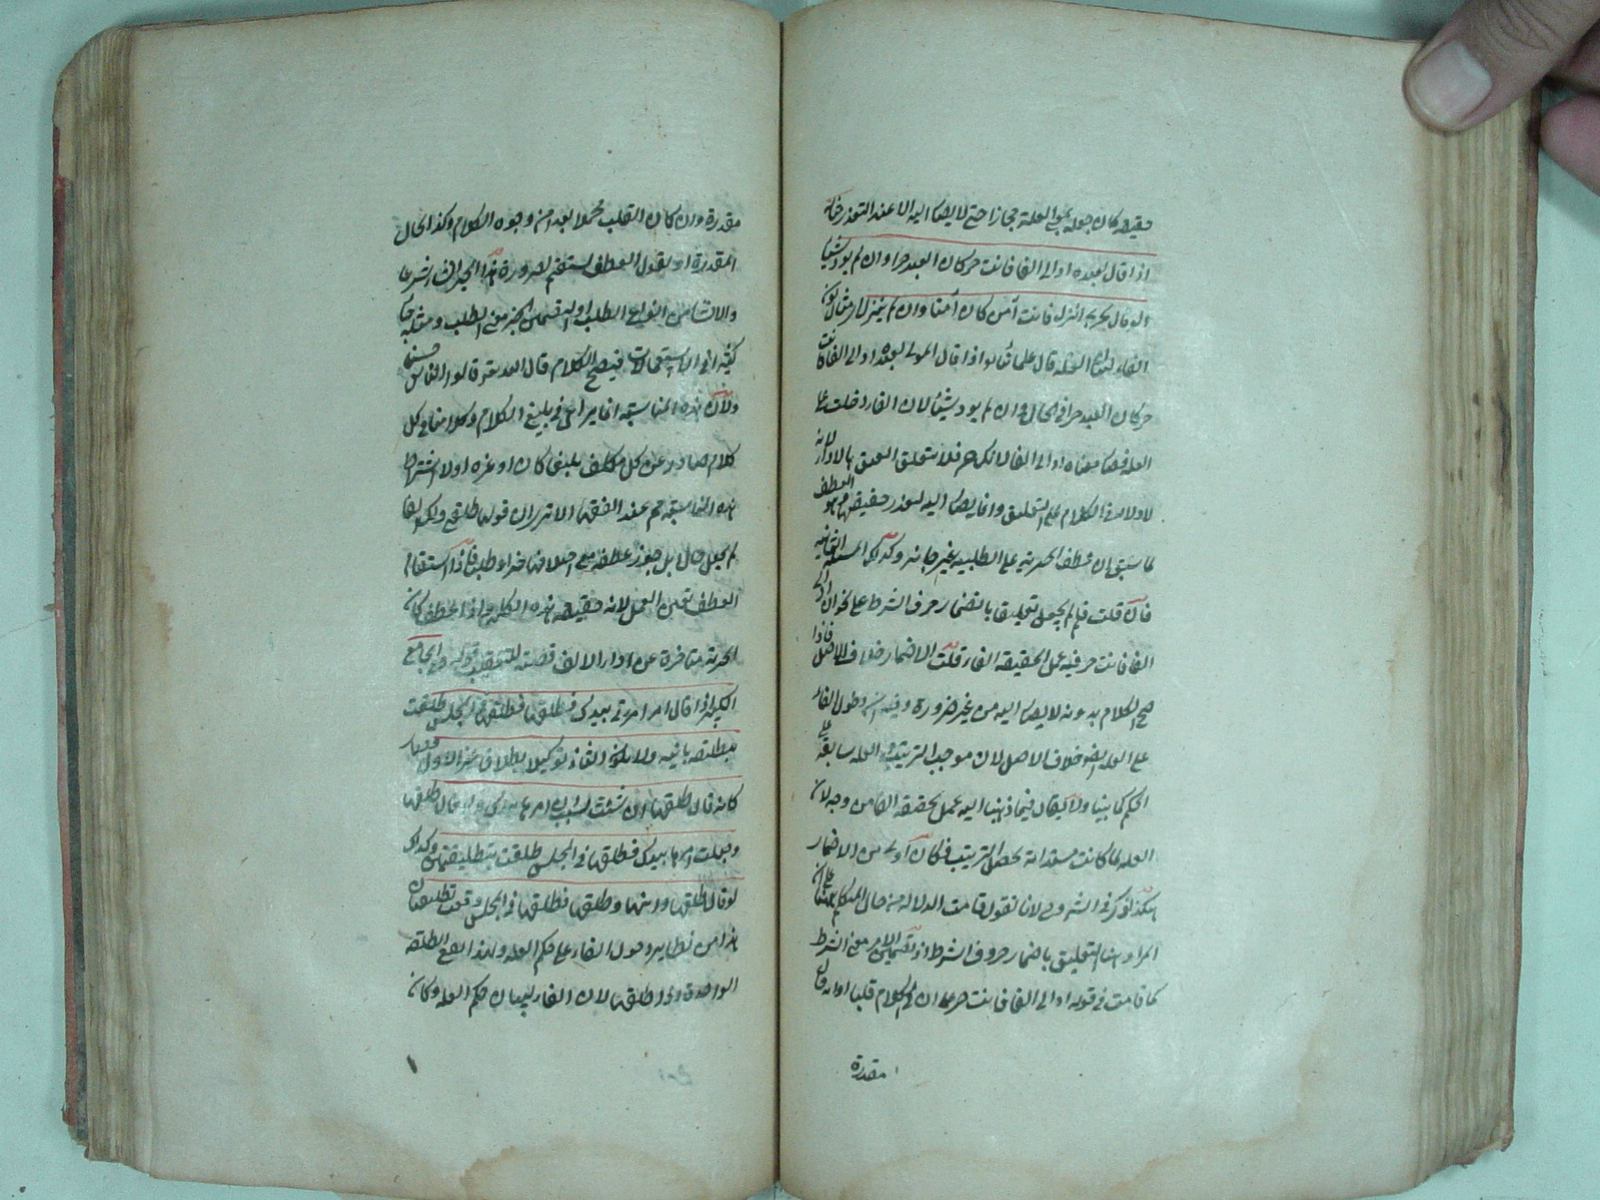 حقيقة كان جعله بمعنى العلة مجازا حتى لا يصار اليه الا عند التعذر
اذا قال لعبده اد الى الفا فانت حر كان العبد حرا وان لم يؤد شيئا
ولو قال لحربي انزل فانت آمن كان آمنا وان لم ينزل
الفاء لبيان العلة قال علماؤنا اذا قال المولى لعبده اد الى الفا فانت
حر كان العبد حرا في الحال وان لم يؤد شيئا لان الفاء دخلت على
العلة فصار معناه اد الى الفا لانك حر فلا يتعلق العتق بالاداء لانه
لا دلالة في الكلام على التعليق وانما يصار اليه لتعذر حقيقة العطف
لما سبق ان عطف الخبرية على الطلبية غير جائز وكذلك المسئلة الثانية
فان قلت فلم لم يجعل تعليقا باضمار حرف الشرط على نحو ان اديت الى
الفا فانت حر فيه عمل لحقيقة الفاء قلت الاضمار خلاف الاصل فاذا
صح الكلام بدونه لا يصار اليه من غير ضرورة وفيه دخول الفاء
على العلة ايضا خلاف الاصل لان موجب الترتيب والعلة سابقة على
الحكم كما بينا ولا يقال فيما ذهبنا اليه عمل بحقيقة الفاء من وجه لان
العلة لما كانت مستدامة يحصل الترتيب فكان اولى من الاضمار
هكذا ذكر في الشروح لانا نقول قامت الدلالة من حال المتكلم على ان
المراد هنا التعليق باضمار حروف الشرط اذ تضمن الامر معنى الشرط
كما قامت في قوله اد الى الفا فانت حر على ان في الكلام قلبا او انه حال
مقدرة
مقدرة وان كان القلب محملا بعيدا من وجوه الكلام وكذا الحال
المقدرة او نقول العطف مستقيم لصرورة هذا الخبر انشاء شرعا
والانشاء من انواع الطلب او لتضمن الخبر معنى الطلب ومثله جاء
كثيرا في الاستعمالات فيصح الكلام قال الله تعالى وقولوا للناس حسنا
ولان هذه المناسبة انما يراعى في بليغ الكلام وكلامنا في كل
كلام صادر عن كل مكلف بليغا كان او غيره او لا اشتراط
هذه المناسبة ثم عند الفقهاء الا ترى ان قوله طالق ولك الف
لم يجعل حالا بل جوز عطفه مع اختلافهما خبرا وطلبا فاذا استقام
العطف تعين العمل لانه حقيقة هذه الكلمة واذا عطف كانت
الحرية متاخرة عن اداء الالف قضية للتعقيب قوله وفي الجامع
الكبير اذا قال امر امرأتي بيدك فطلقها فطلقها في المجلس طلقت
بتطليقة بائنة ولا يكون الثاني توكيلا بطلاق غير الاول فصار
كانه قال طلقها ان شئت لسبب ان امرها بيدك ولو قال طلقها
وجعلت امرها بيدك فطلقها في المجلس طلقت بتطليقتين وكذلك
لو قال طلقها وابنها وطلقها فطلقها في المجلس وقعت تطليقتان
هذا من نظاير دخول الفاء على حكم العلة ولهذا يقع الطلقة
الواحدة اذا طلقها لان الفاء لبيان حكم العلة وكان